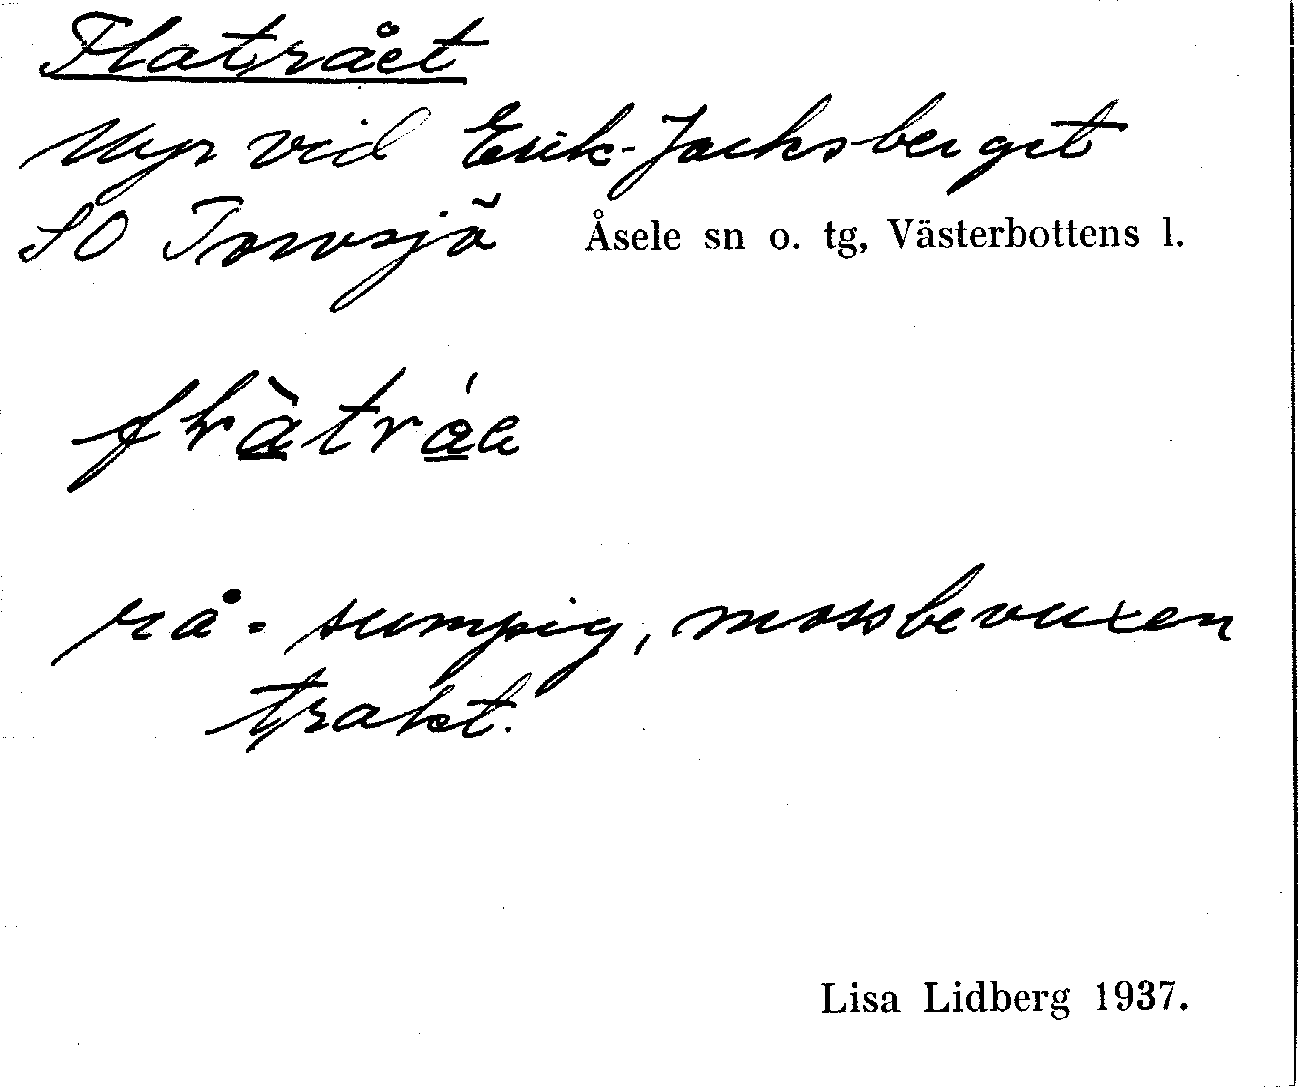 Flatrået
Myr vid Erik-Jacksberget
SO Torvsjö Åsele sn o. tg, Västerbottens l.
rå = sumpig, mossbevuxen
trakt.
Lisa Lidberg 1937.